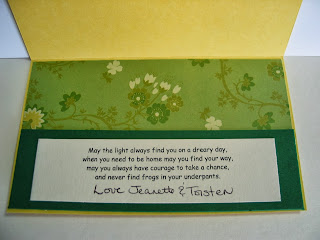 May the light always find you on a dreary day,
when you need to be home may you find your way,
may you always have courage to take a chance,
and never find frogs in your underpants.
Love Jeanette & Torsten